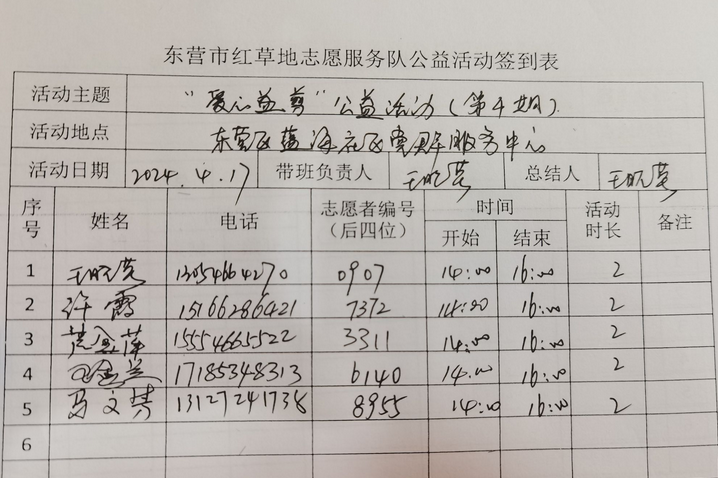 东营市红草地志愿服务队公益活动签到表
活动主题 “爱心益剪”公益活动(第4期)
活动地点 东营区蓝海社区党群服务中心
活动日期 2024.4.17 带班负责人 总结人
序号 姓名 电话 志愿者编号（后四位） 时间 开始 结束 活动时长 备注
1 13054664270 0907 14:00 16:00 2
2 许霞 15166286421 7372 14:00 16:00 2
3 15554665522 3311 14:00 16:00 2
4 17185348313 6140 14:00 16:00 2
5 马文芳 13127241738 8955 14:00 16:00 2
6